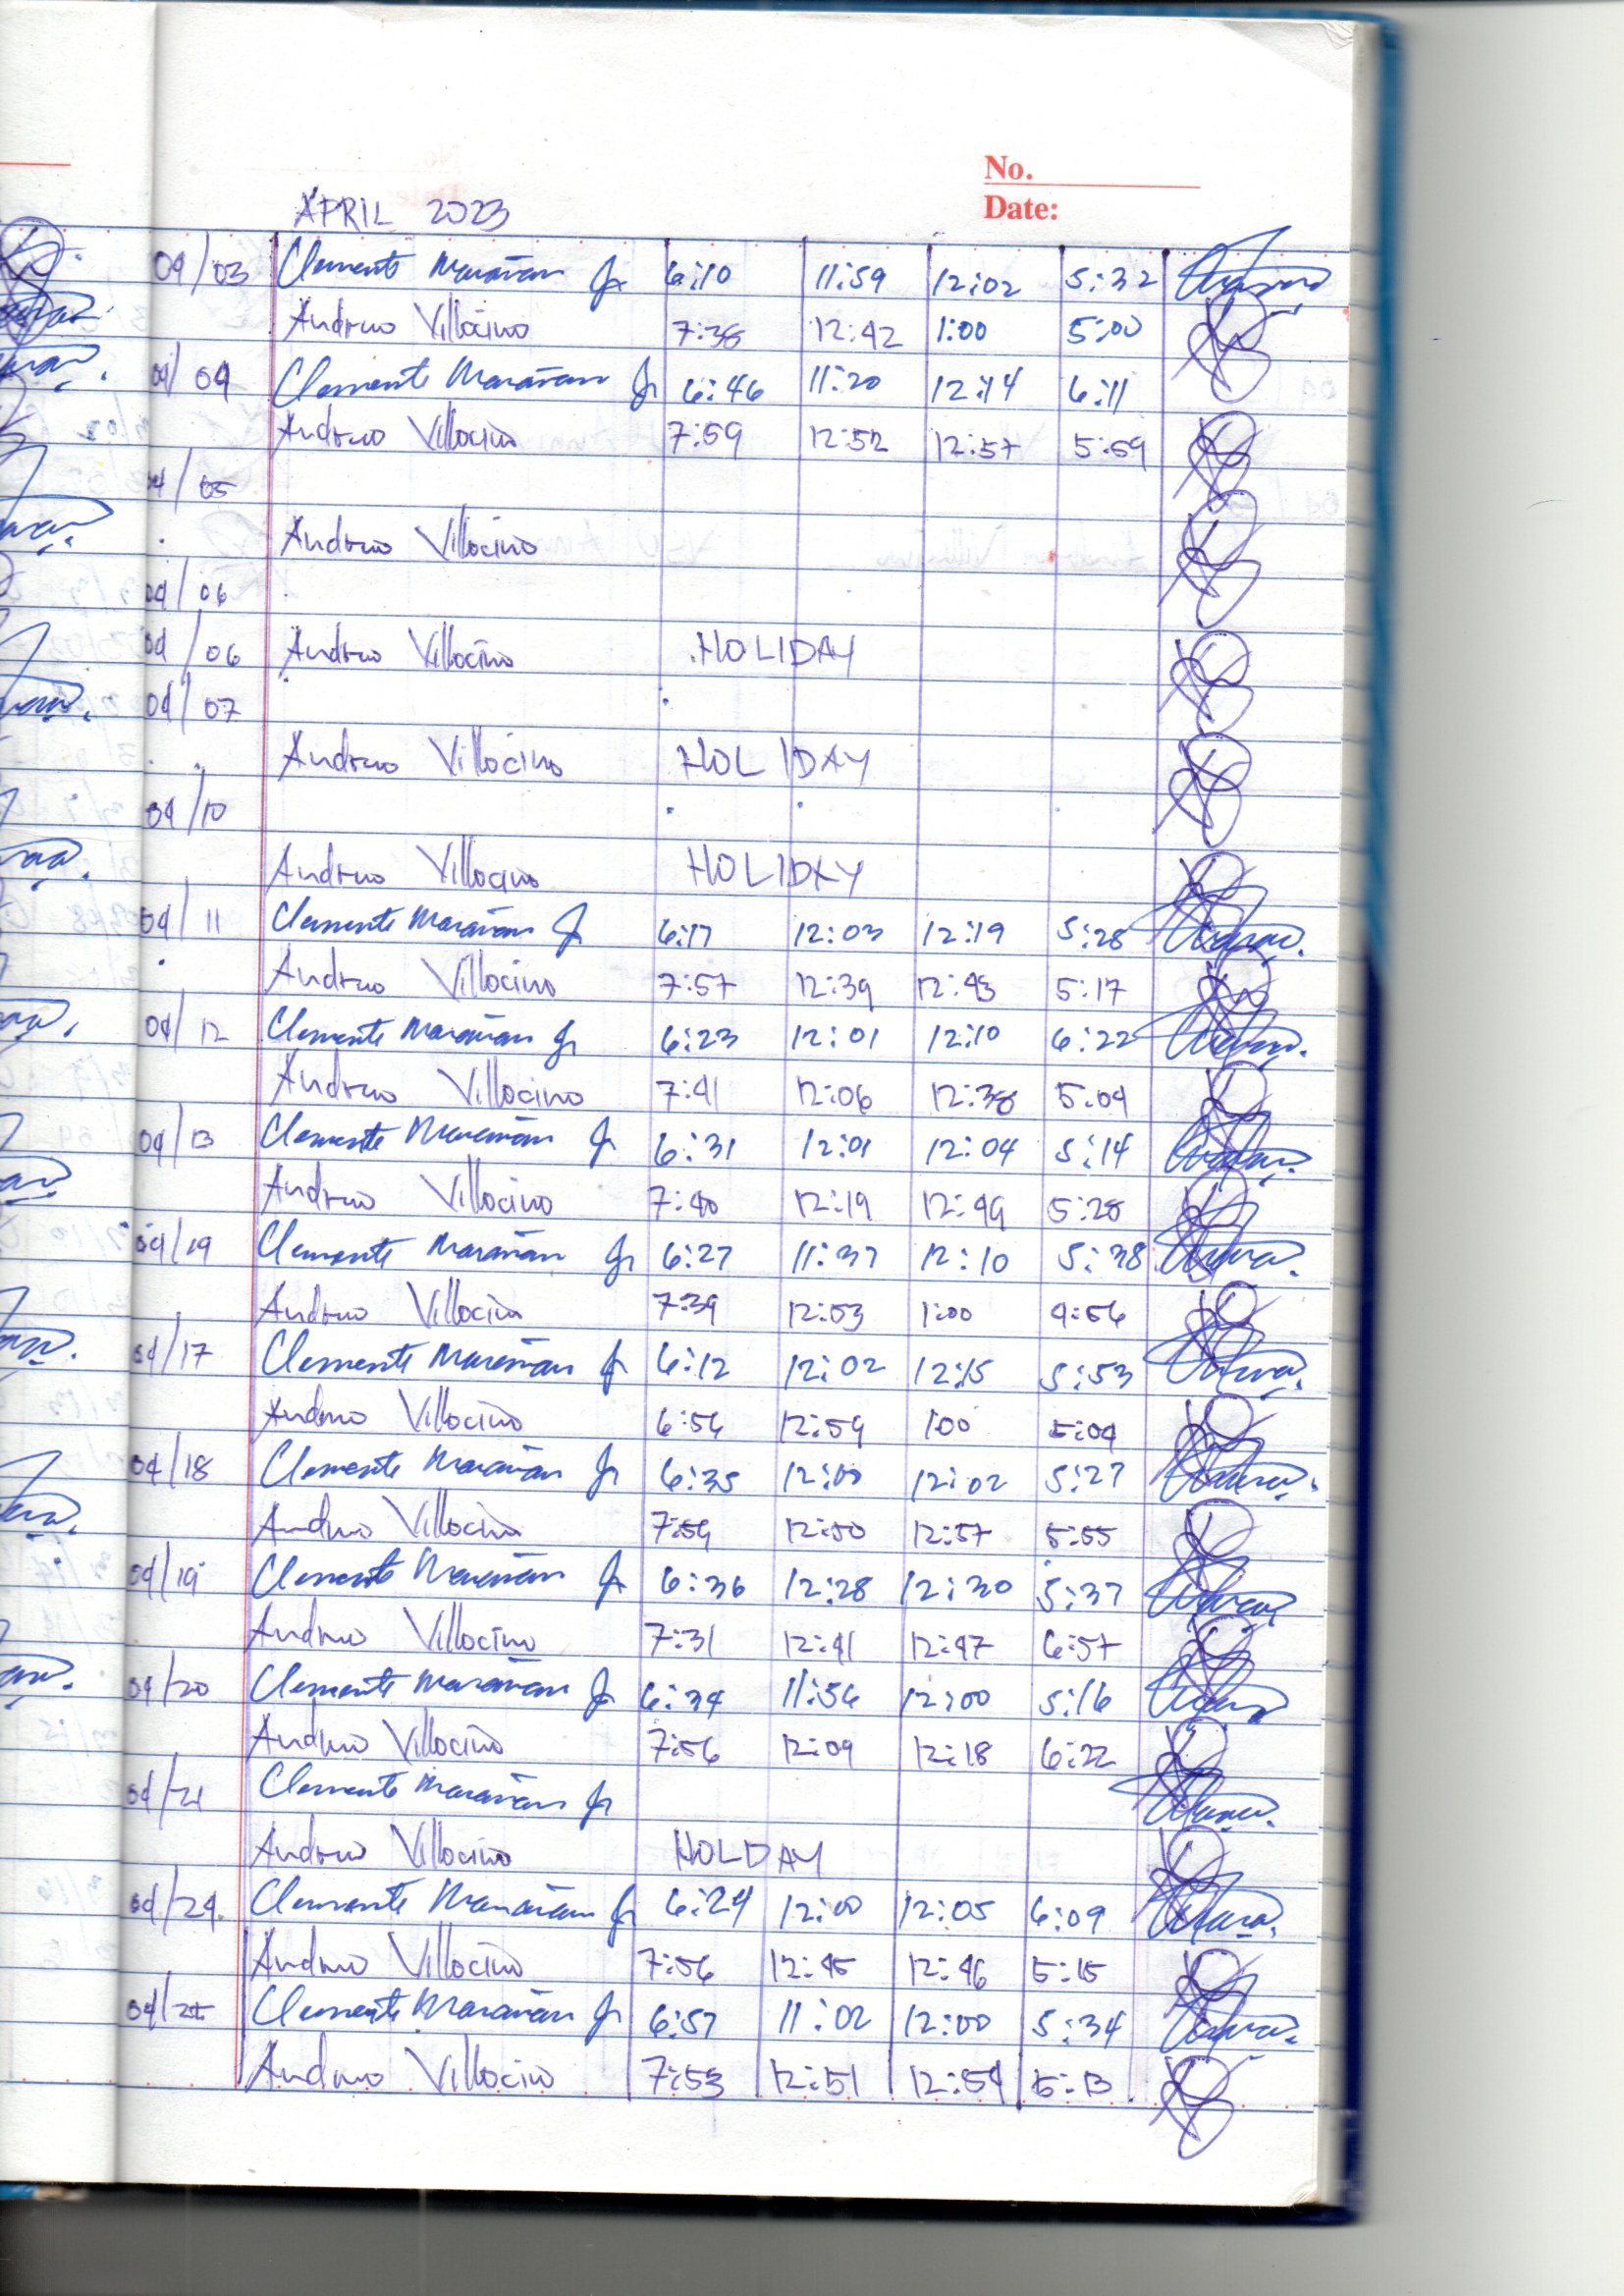 No.
Date:
APRIL 2023
04/03 Clemente Marañan Jr 6:10 11:59 12:02 5:32
Andrew Villocino 7:38 12:42 1:00 5:00
04/04 Clemente Marañan Jr 6:46 11:20 12:14 6:11
Andrew Villocino 7:59 12:52 12:57 5:59
04/05
Andrew Villocino
04/06
04/06 Andrew Villocino HOLIDAY
04/07
Andrew Villocino HOLIDAY
04/10
Andrew Villocino HOLIDAY
04/11 Clemente Marañan Jr 6:17 12:03 12:19 5:28
Andrew Villocino 7:57 12:39 12:43 5:17
04/12 Clemente Marañan Jr 6:23 12:01 12:10 6:22
Andrew Villocino 7:41 12:06 12:38 5:04
04/13 Clemente Marañan Jr 6:31 12:01 12:04 5:14
Andrew Villocino 7:40 12:19 12:49 5:28
04/14 Clemente Marañan Jr 6:27 11:37 12:10 5:38
Andrew Villocino 7:39 12:53 1:00 4:56
04/17 Clemente Marañan Jr 6:12 12:02 12:15 5:53
Andrew Villocino 6:54 12:59 1:00 5:04
04/18 Clemente Marañan Jr 6:35 12:00 12:02 5:27
Andrew Villocino 7:59 12:50 12:57 5:55
04/19 Clemente Marañan Jr 6:36 12:28 12:30 5:37
Andrew Villocino 7:31 12:41 12:47 6:57
04/20 Clemente Marañan Jr 6:34 11:56 12:00 5:16
Andrew Villocino 7:56 12:09 12:18 6:22
04/21 Clemente Marañan Jr
Andrew Villocino HOLDAY
04/24 Clemente Marañan Jr 6:24 12:00 12:05 6:09
Andrew Villocino 7:56 12:45 12:46 5:15
04/25 Clemente Marañan Jr 6:57 11:02 12:00 5:34
Andrew Villocino 7:53 12:51 12:54 5:13